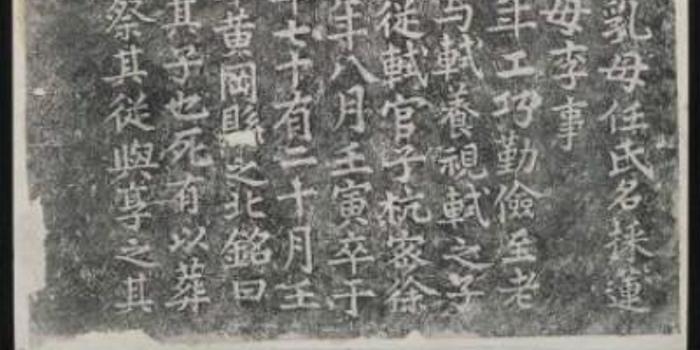 乳母任氏名採蓮
母李事
年工巧勤儉至老
軾養視軾之子
從軾官于杭密徐
年八月壬寅卒于
七十有二十月壬
黃岡縣之北銘曰
其子也死有以葬
祭其從與享之其